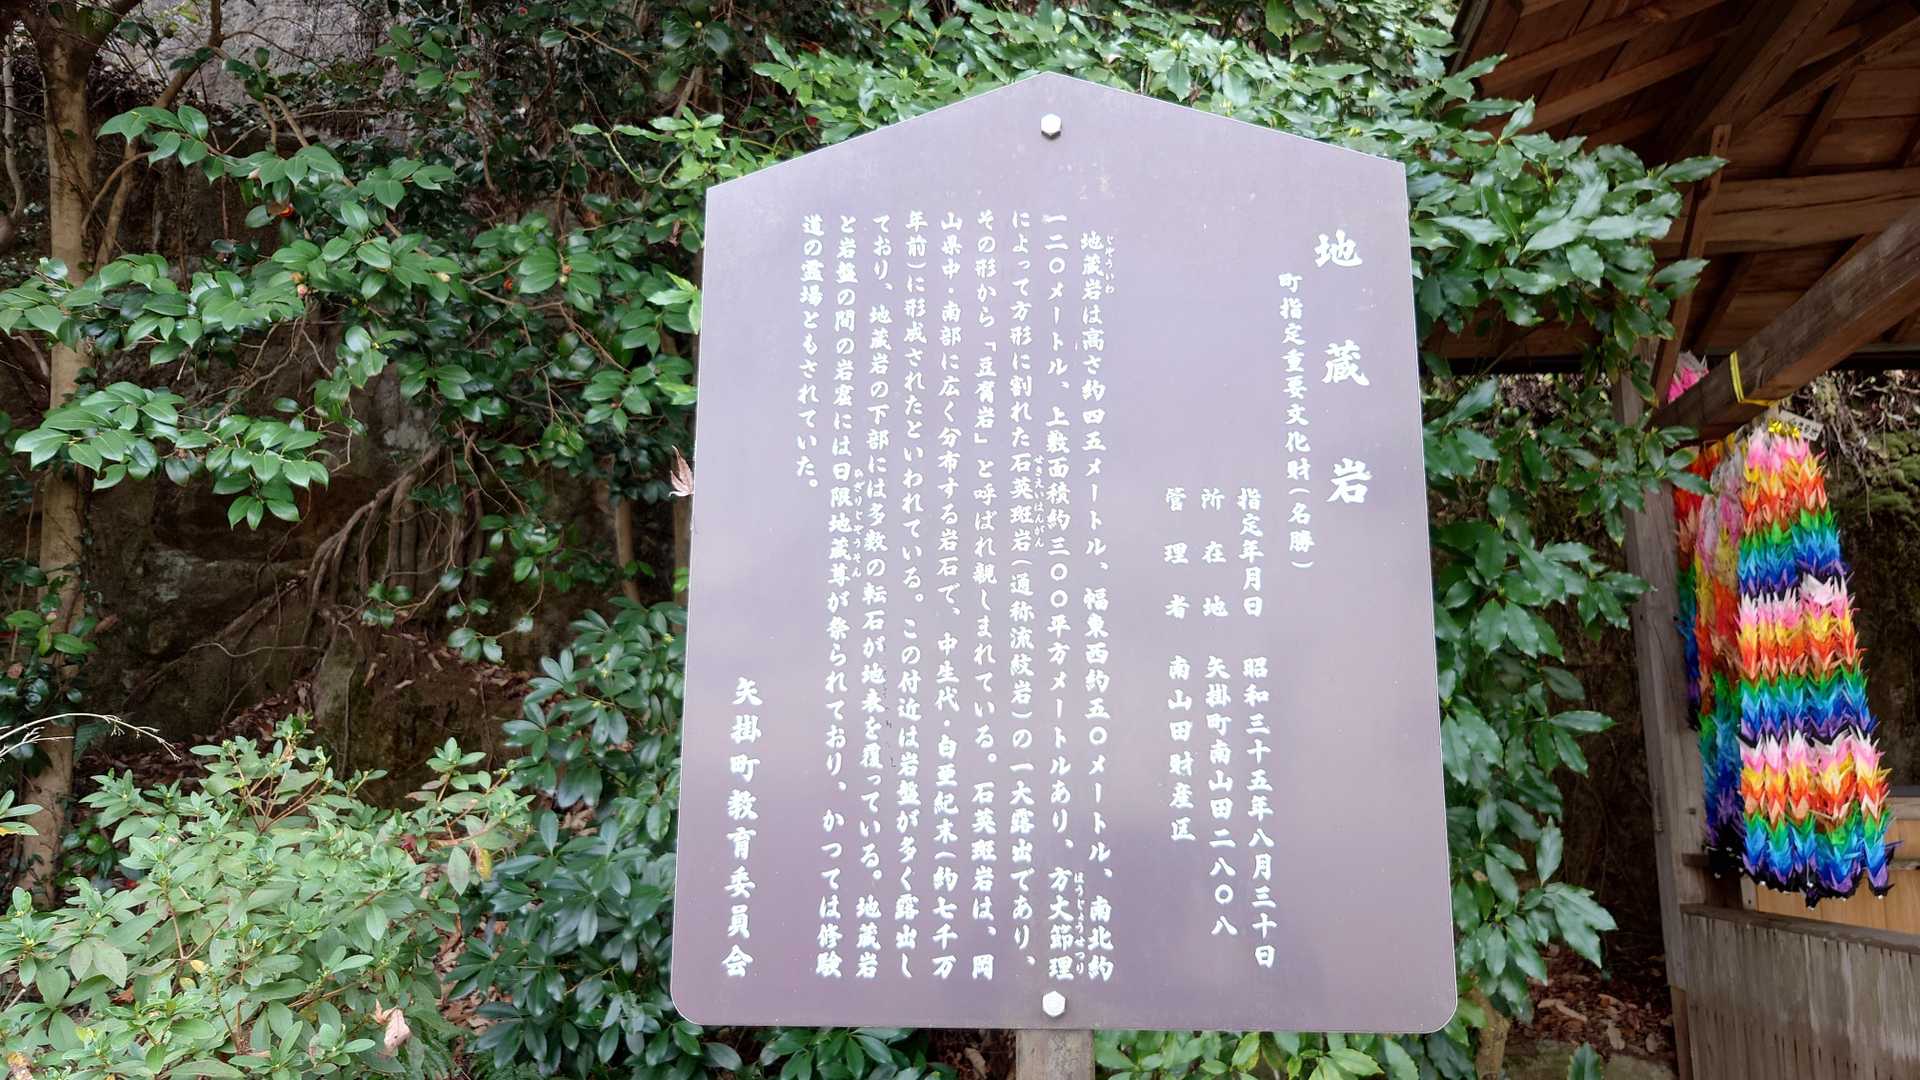 地蔵岩
町指定重要文化財(名勝)
指定年月日 昭和三十五年八月三十日
所在地 矢掛町南山田二八〇八
管理者 南山田財産区
地蔵岩は高さ約四五メートル、福東西約五〇メートル、南北約
じぞういわ
一二〇メートル、上敷面積約三〇〇平方メートルあり、方大節理
ほうじょうせつり
によって方形に割れた石英斑岩(通称流紋岩)の一大露出であり、
せきえいはんがん
その形から「豆腐岩」と呼ばれ親しまれている。石英斑岩は、岡
山県中・南部に広く分布する岩石で、中生代・白亜紀末(約七千万
年前)に形成されたといわれている。この付近は岩盤が多く露出し
ており、地蔵岩の下部には多数の転石が地表を覆っている。地蔵岩
と岩盤の間の岩窟には日限地蔵尊が祭られており、かつては修験
ひぎりじぞうそん
道の霊場ともされていた。
矢掛町教育委員会